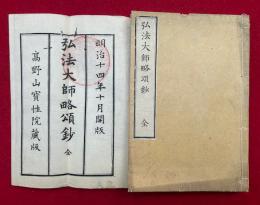 明治十四年十月開版
弘法大師略頌鈔 全
高野山寳性院藏版
弘法大師略頌鈔 全